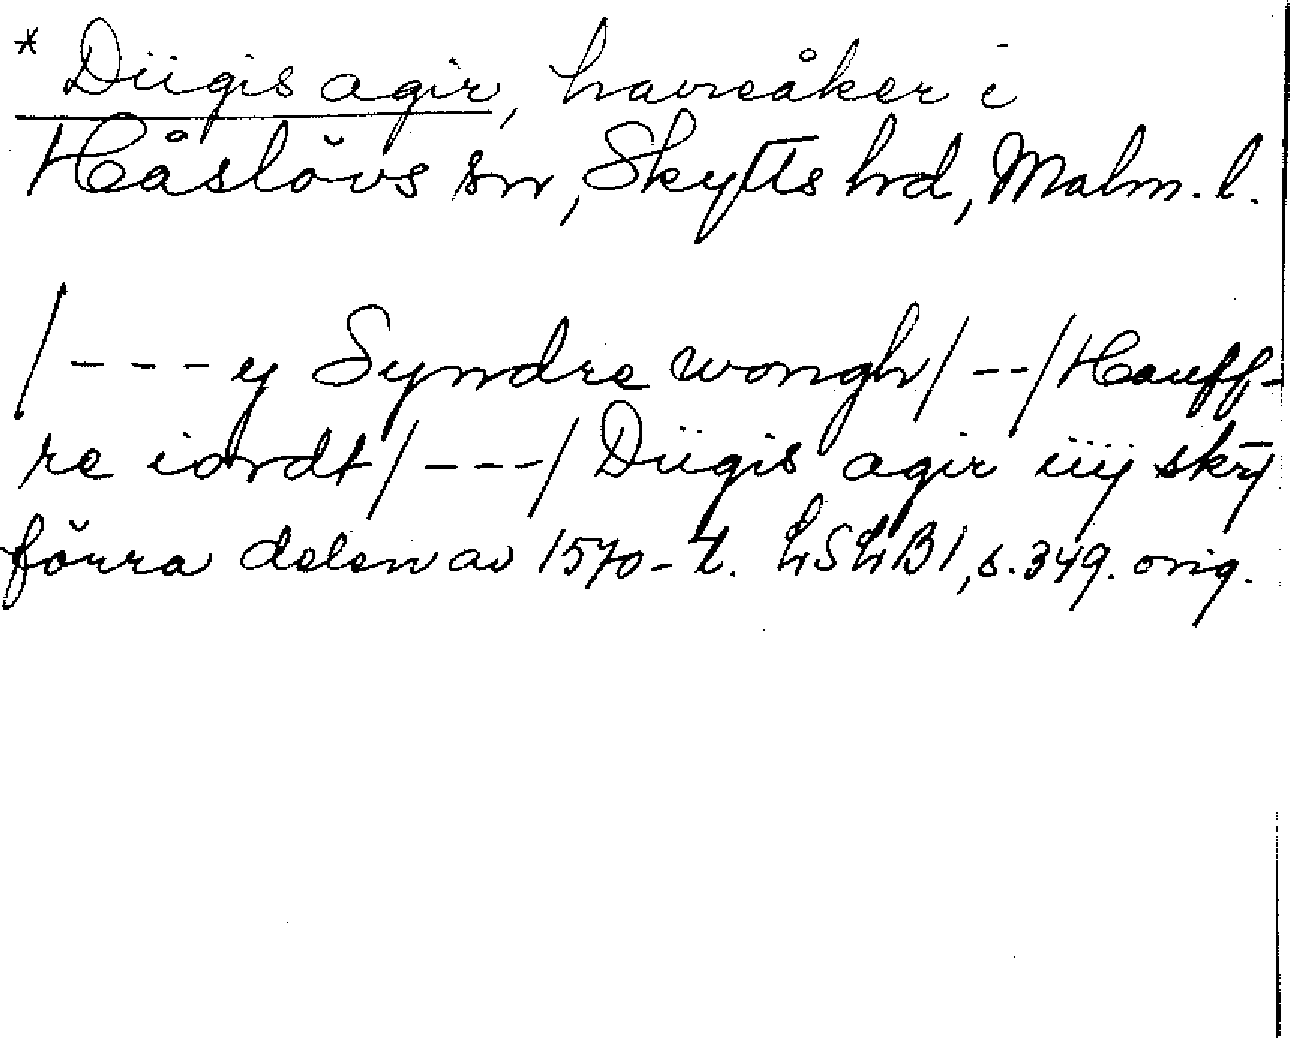 * Diigis agir, havreåker i
Håslövs sn, Skytts hd, Malm. l.
/---y Syndre wongh/--/Hauff-
re iordt/---/Diigis agir iiij skr̄
förra delen av 1570-t. LSLB1, s. 349. orig.